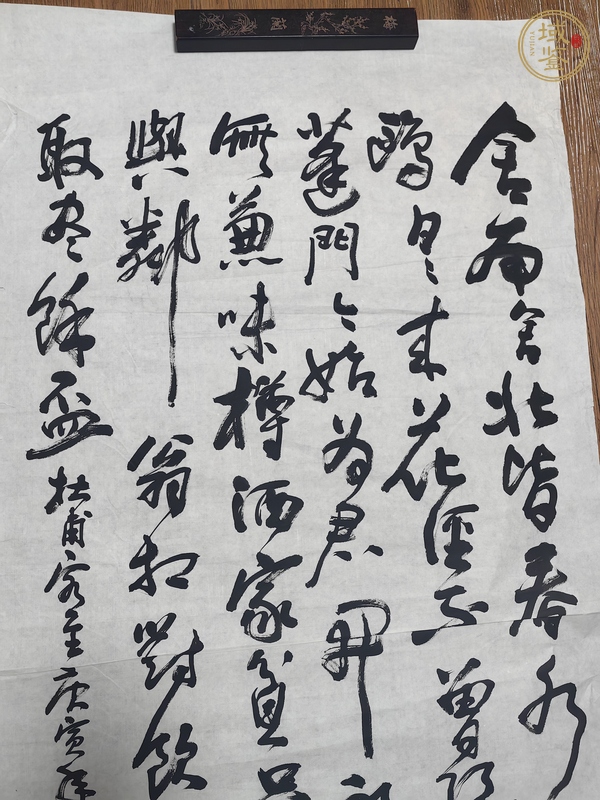 舍南舍北皆春水
鷗日日来花徑不曾
蓬門今始为君開
無兼味樽酒家貧只
與鄰翁相對飲
取尽餘盃杜甫客至庚寅年
域鉴
YUJIAN